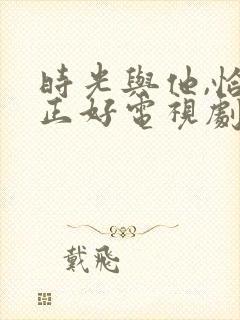 時光與他,恰
正好電視劇
戴飛